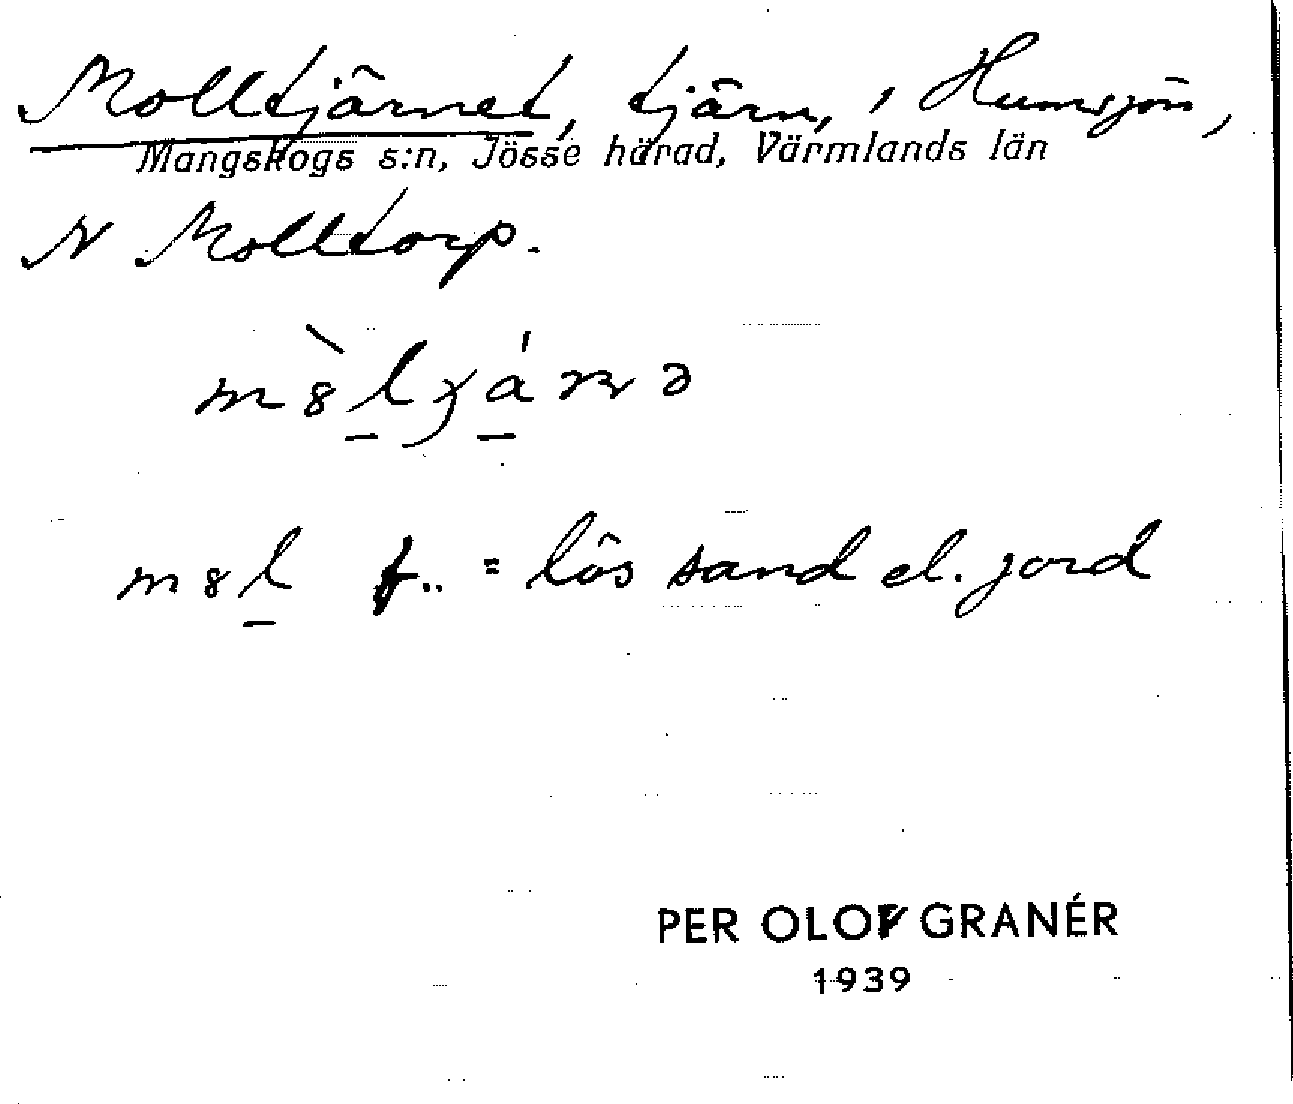 Molltjärnet, tjärn, i Humsjön,
Mangskogs s:n, Jösse härad, Värmlands län
N Molltorp.
m8l f.. = lös sand el. jord
PER OLOF GRANÉR
1939